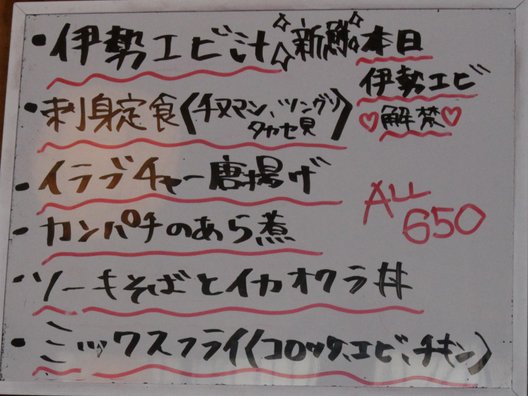 ・伊勢エビ汁 新鮮。本日
伊勢エビ
解禁
・刺身定食(チヌマン、ツングリ
タカセ貝)
・イラブチャー唐揚げ
・カンパチのあら煮
ALL
650
・ソーキそばとイカオクラ丼
・ミックスフライ(コロッケ、エビ、チキン)